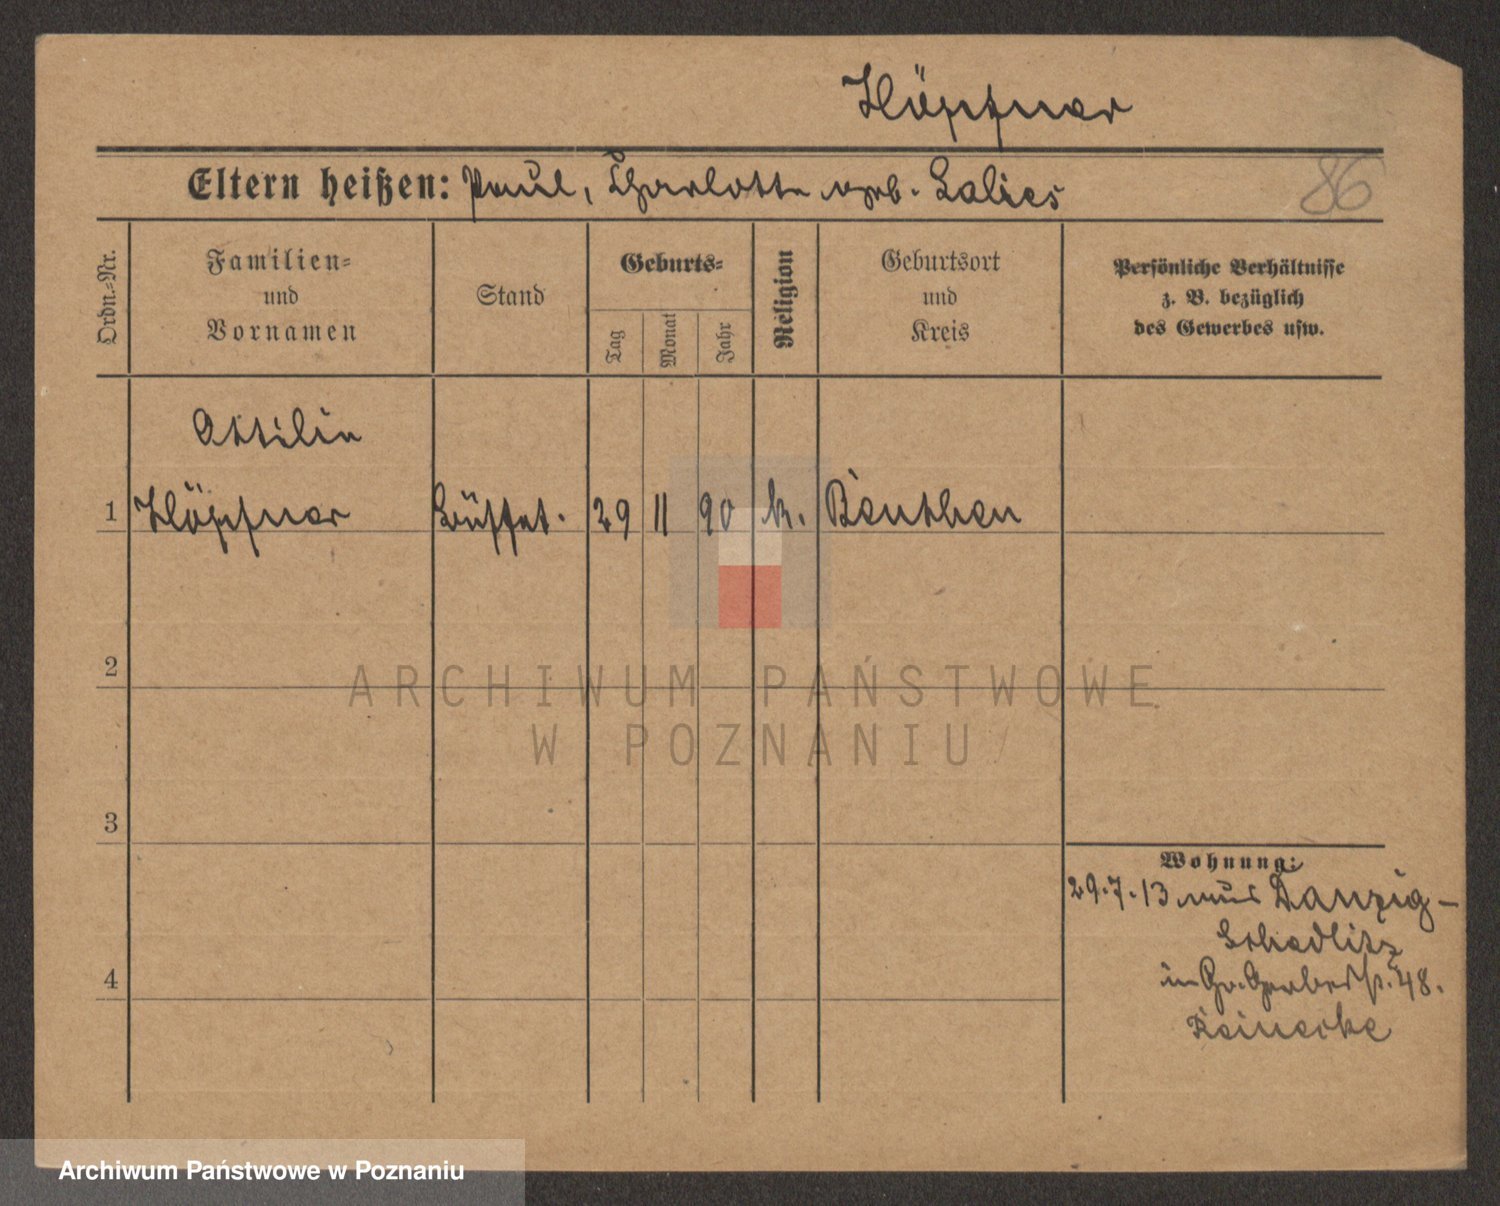 Höpfner
Eltern heißen: Paul, Charlotte geb. Salies
86
Ordn.-Nr.
Familien-
und
Vornamen
Stand
Geburts-
Tag
Monat
Jahr
Religion
Geburtsort
und
Kreis
Persönliche Verhältnisse
z. B. bezüglich
des Gewerbes usw.
Ottilie
1 Höpfner Büffet. 29 11 90 k. Beuthen
2
3
4
Wohnung:
29.7.13 aus Danzig-
Schedlitz
in Gr. Gerberstr. 48.
Reinecke
ARCHIWUM PAŃSTWOWE
W POZNANIU
Archiwum Państwowe w Poznaniu